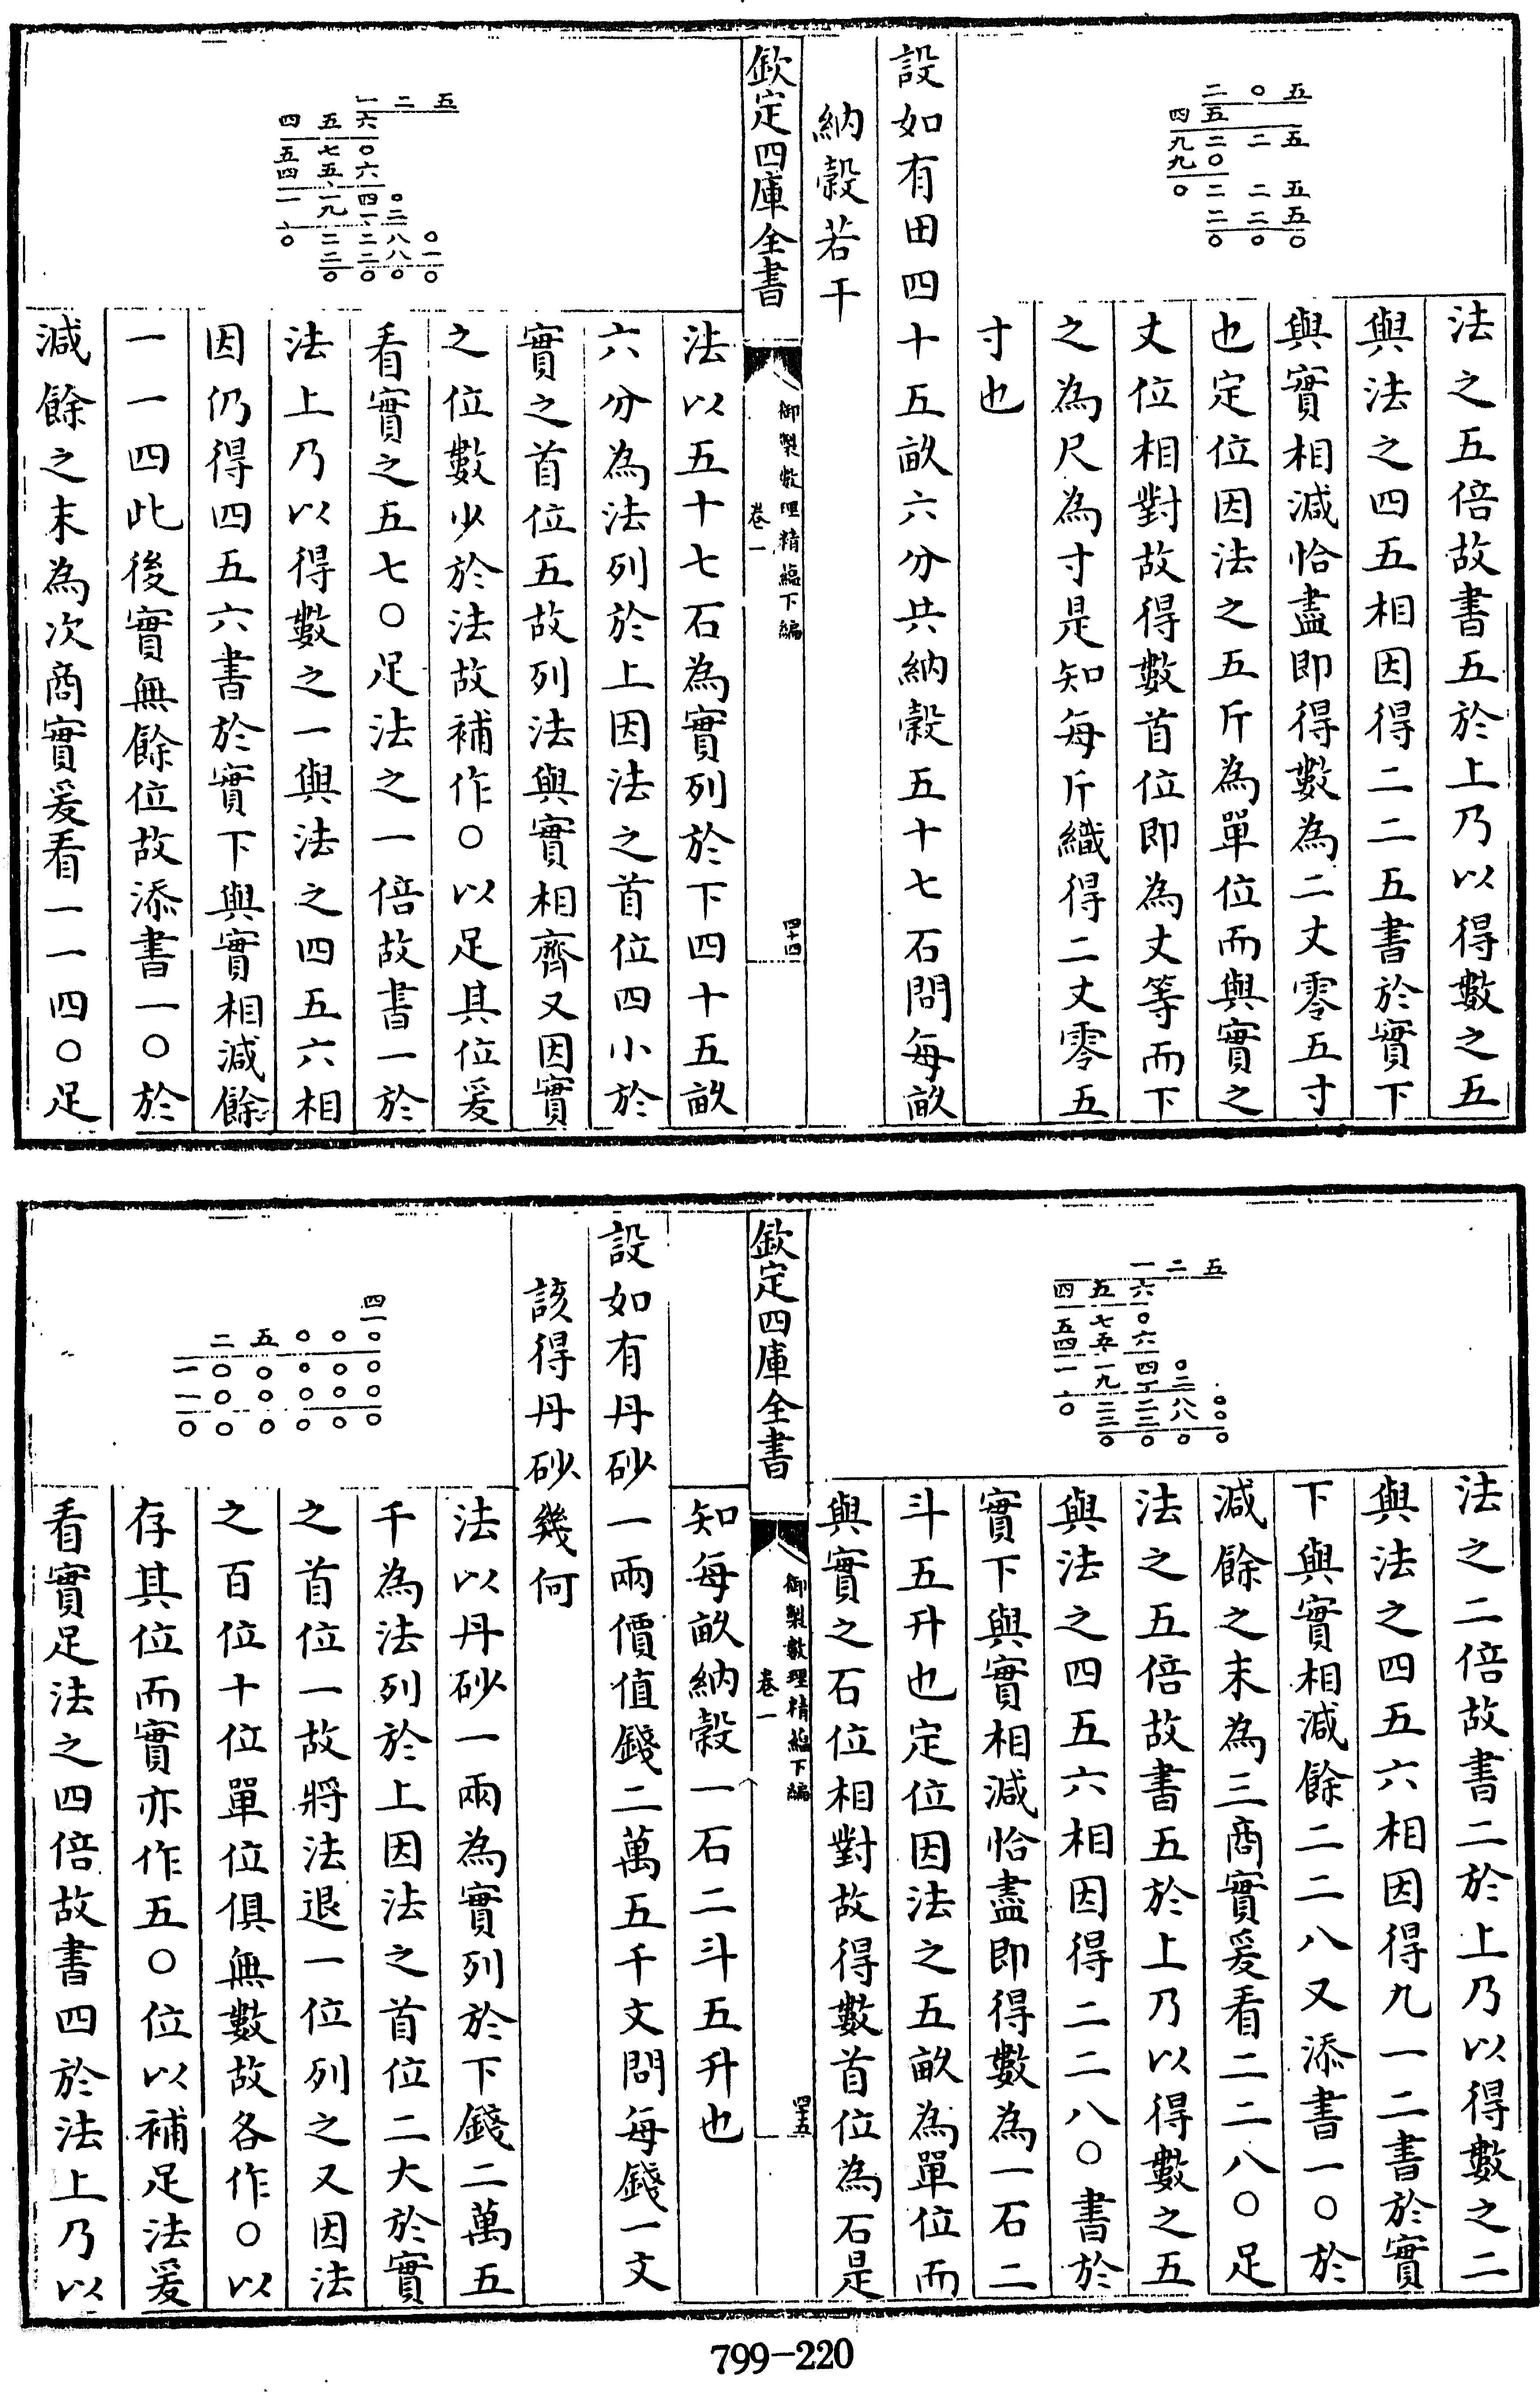 二〇五
四五
九二二五
九〇
〇二二五
二二五
〇〇〇
法之五倍故書五於上乃以得數之五
與法之四五相因得二二五書於實下
與實相減恰盡即得數為二丈零五寸
也定位因法之五斤為單位而與實之
丈位相對故得數首位即為丈等而下
之為尺為寸是知每斤織得二丈零五
寸也
設如有田四十五畝六分共納穀五十七石問每畝
納穀若干
欽定四庫全書
御製數理精蘊下編
卷一
四十四
一二五
四五六
五七〇
四五六
一一四〇
九一二
〇二二八〇
二二八〇
〇〇〇〇
法以五十七石為實列於下四十五畝
六分為法列於上因法之首位四小於
實之首位五故列法與實相齊又因實
之位數少於法故補作〇以足其位爰
看實之五七〇足法之一倍故書一於
法上乃以得數之一與法之四五六相
因仍得四五六書於實下與實相減餘
一一四此後實無餘位故添書一〇於
減餘之末為次商實爰看一一四〇足
一二五
四五六
五七〇
四五六
一一四〇
九一二
〇二二八〇
二二八〇
〇〇〇〇
法之二倍故書二於上乃以得數之二
與法之四五六相因得九一二書於實
下與實相減餘二二八又添書一〇於
減餘之末為三商實爰看二二八〇足
法之五倍故書五於上乃以得數之五
與法之四五六相因得二二八〇書於
實下與實相減恰盡即得數為一石二
斗五升也定位因法之五畝為單位而
與實之石位相對故得數首位為石是
欽定四庫全書
御製數理精蘊下編
卷一
四十五
知每畝納穀一石二斗五升也
設如有丹砂一兩價值錢二萬五千文問每錢一文
該得丹砂幾何
四
二五〇〇〇
一〇〇〇〇〇
一〇〇〇〇〇
〇〇〇〇〇〇
法以丹砂一兩為實列於下錢二萬五
千為法列於上因法之首位二大於實
之首位一故將法退一位列之又因法
之百位十位單位俱無數故各作〇以
存其位而實亦作五〇位以補足法爰
看實足法之四倍故書四於法上乃以
799-220